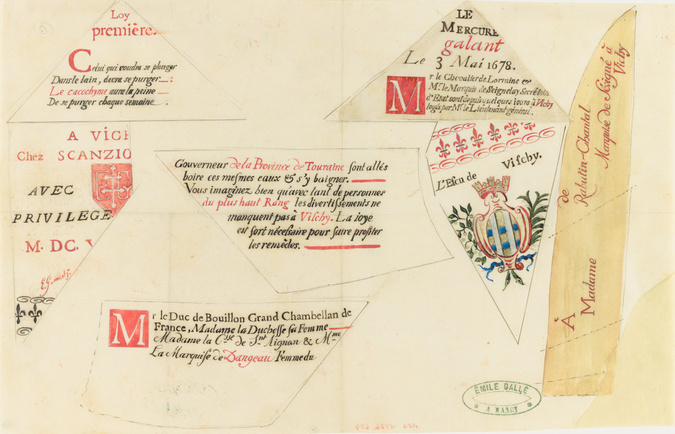 Loy
première.
Celui qui voudra se plonger
Dans le bain, devra se purger
Le cacochyme aura la peine
De se purger chaque semaine
LE
MERCURE
galant
Le 3 Mai 1678.
Mr le Chevalier de Lorraine &
Mr le Marquis de Seignelay, Secrétaire
d'Etat sont depuis quelques jours à Vichy
logés par Mr le Lieutenant général.
A VICH
Chez SCANZIO
AVEC
PRIVILEGE
M. DC. V
Gouverneur de la Province de Touraine sont allés
boire ces mesmes eaux & s'y baigner.
Vous imaginez bien qu'avec tant de personnes
du plus haut Rang les divertissements ne
manquent pas à Vischy. La joye
est fort nécessaire pour faire profiter
les remèdes.
L'Eau de Vischy.
À Madame de Rabutin-Chantal
Marquise de Sévigné à
Vichy
Mr le Duc de Bouillon Grand Chambellan de
France, Madame la Duchesse sa Femme
Madame la Csse de St Aignan & Mme
La Marquise de Dangeau Femme du
EMILE GALLÉ
A NANCY